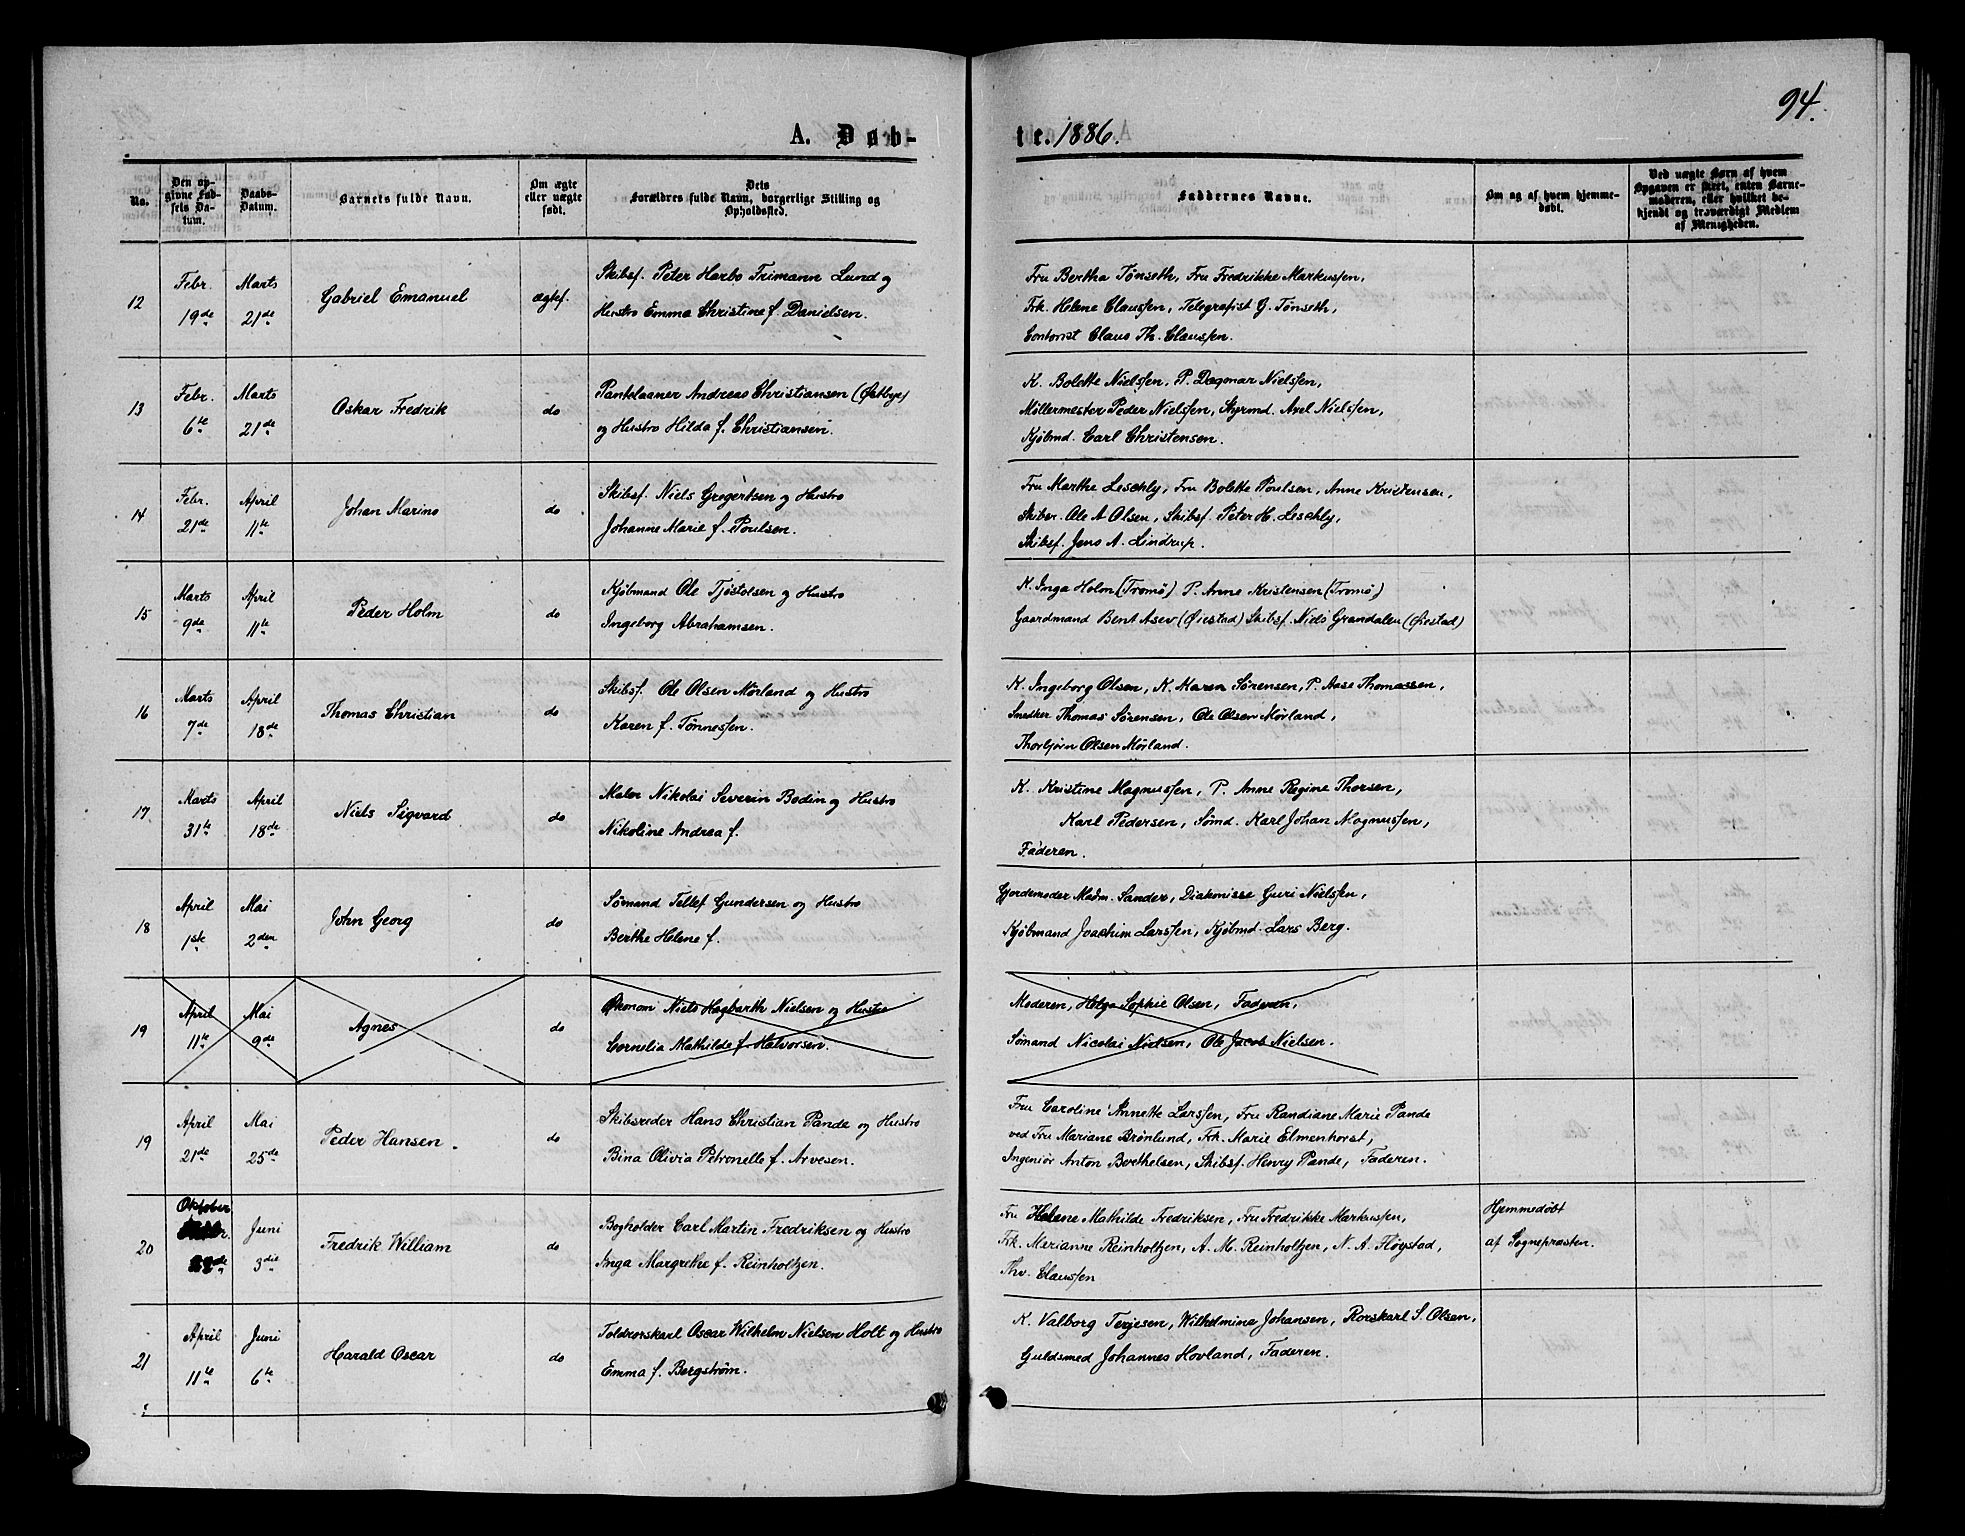 94.
A. Døb-
te. 1886.
No.
Den op-
givne Fød-
sels Da-
tum.
Daabs-
Datum.
Barnets fulde Navn.
Om ægte
eller uægte
født.
Dets
Forældres fulde Navn, borgerlige Stilling og
Opholdssted.
Faddernes Navne.
Om og af hvem hjemme-
døbt.
Ved uægte Børn af hvem
Opgaven er skeet, enten Barne-
moderen, eller hvilket be-
kjendt og troværdigt Medlem
af Menigheden.
12
Febr.
19de
Marts
21de
Gabriel Emanuel
ægtef.
Skibsf. Peter Harbo Frimann Lund og
Hustro Emma Christine f. Danielsen.
Fru Bertha Tønseth, Fru Fredrikke Markussen,
Frk. Helene Claussen, Telegrafist G. Tønseth,
Contorist Claus Th. Claussen.
13
Febr.
6te
Marts
21de
Oskar Fredrik
do
Pantelaaner Andreas Christiansen (Østbye)
og Hustro Hilda f. Christiansen.
K. Bolette Nielssen, P. Dagmar Nielssen,
Møllermester Peder Nielssen, Styrmd. Axel Nielssen,
Kjøbmd. Carl Christensen.
14
Febr.
21de
April
11te
Johan Marino
do
Skibsf. Niels Gregertsen og Hustro
Johanne Marie f. Poulsen.
Fru Marthe Leschly, Fru Bolette Poulsen, Anne Kristensen,
Skiber. Ole A Olsen, Skibsf. Peter H. Leschly,
Skibsf. Jens A. Lindrup.
15
Marts
9de
April
11te
Peder Holm
do
Kjøbmand Ole Tjøstolsen og Hustro
Ingeborg Abrahamsen.
K. Inga Holm (Tromø) P. Anne Kristensen (Tromø)
Gaardmand Bent Asev (Øiestad) Skibsf. Niels Grandalen (Øiestad)
16
Marts
7de
April
18de
Thomas Christian
do
Skibsf. Ole Olsen Mørland og Hustro
Karen f. Tønnessen.
K. Ingeborg Olsen, K. Maren Sørensen, P. Aase Thomassen,
Snedker Thomas Sørensen, Ole Olsen Mørland,
Thorbjørn Olsen Mørland.
17
Marts
31te
April
18de
Niels Sigvard
do
Maler Nikolai Severin Bodin og Hustro
Nikoline Andrea f.
K. Kristine Magnussen, P. Anne Regine Thorsen,
Karl Pedersen, Sømd. Karl Johan Magnussen,
Faderen.
18
April
1ste
Mai
2den
John Georg
do
Sømand Tellef Gundersen og Hustro
Berthe Helene f.
Gjordemoder Madm. Sander, Diakonisse Guri Nielssen,
Kjøbmand Joachim Larssen, Kjøbmd. Lars Berg.
19
April
11te
Mai
9de
Agnes
do
Økonom Niels Hagbarth Nielsen og Hustro
Cornelia Mathilde f. Halvorsen.
Moderen, Helga Sophie Olsen, Faderen,
Sømand Nicolai Nielsen, Ole Jacob Nielsen.
19
April
21de
Mai
25de
Peder Hansen.
do
Skibsreder Hans Christian Pande og Hustro
Bina Olivia Petronelle f. Arvesen.
Fru Caroline Annette Larssen, Fru Randiane Marie Pande
ved Fru Mariane Brønlund, Frk. Marie Elmenhorst,
Ingeniør Anton Berthelsen, Skibsf. Henry Pande, Faderen.
20
Oktober
22de
Juni
3die
Fredrik William
do
Bogholder Carl Martin Fredriksen og Hustro
Inga Margrethe f. Reinholtzen.
Fru Helene Mathilde Fredriksen, Fru Fredrikke Markussen,
Frk. Marianne Reinholtzen, A. M. Reinholtzen, N. A. Fløystad,
Thv. Claussen
Hjemmedøbt
af Sognepræsten.
21
April
11te
Juni
6te
Harald Oscar
do
Toldrorskarl Oscar Wilhelm Nielsen Holt og Hustro
Emma f. Bergstrøm.
K. Valborg Terjesen, Wilhelmina Johansen, Rorskarl S. Olsen,
Guldsmed Johannes Hovland, Faderen.